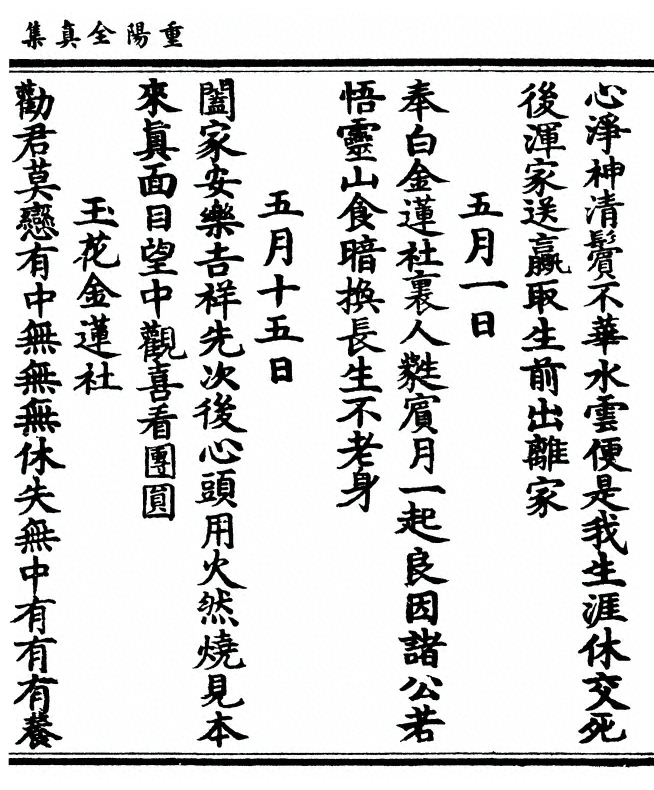 重陽全真集
心淨神清鬢不華水雲便是我生涯休交死
後渾家送贏取生前出離家
五月一日
奉白金蓮社裏人蕤賓月一起良因諸公若
悟靈山食暗換長生不老身
五月十五日
闔家安樂吉祥先次後心頭用火然燒見本
來眞面目望中觀喜看團圓
玉花金蓮社
勸君莫戀有中無無無休失無中有有有養